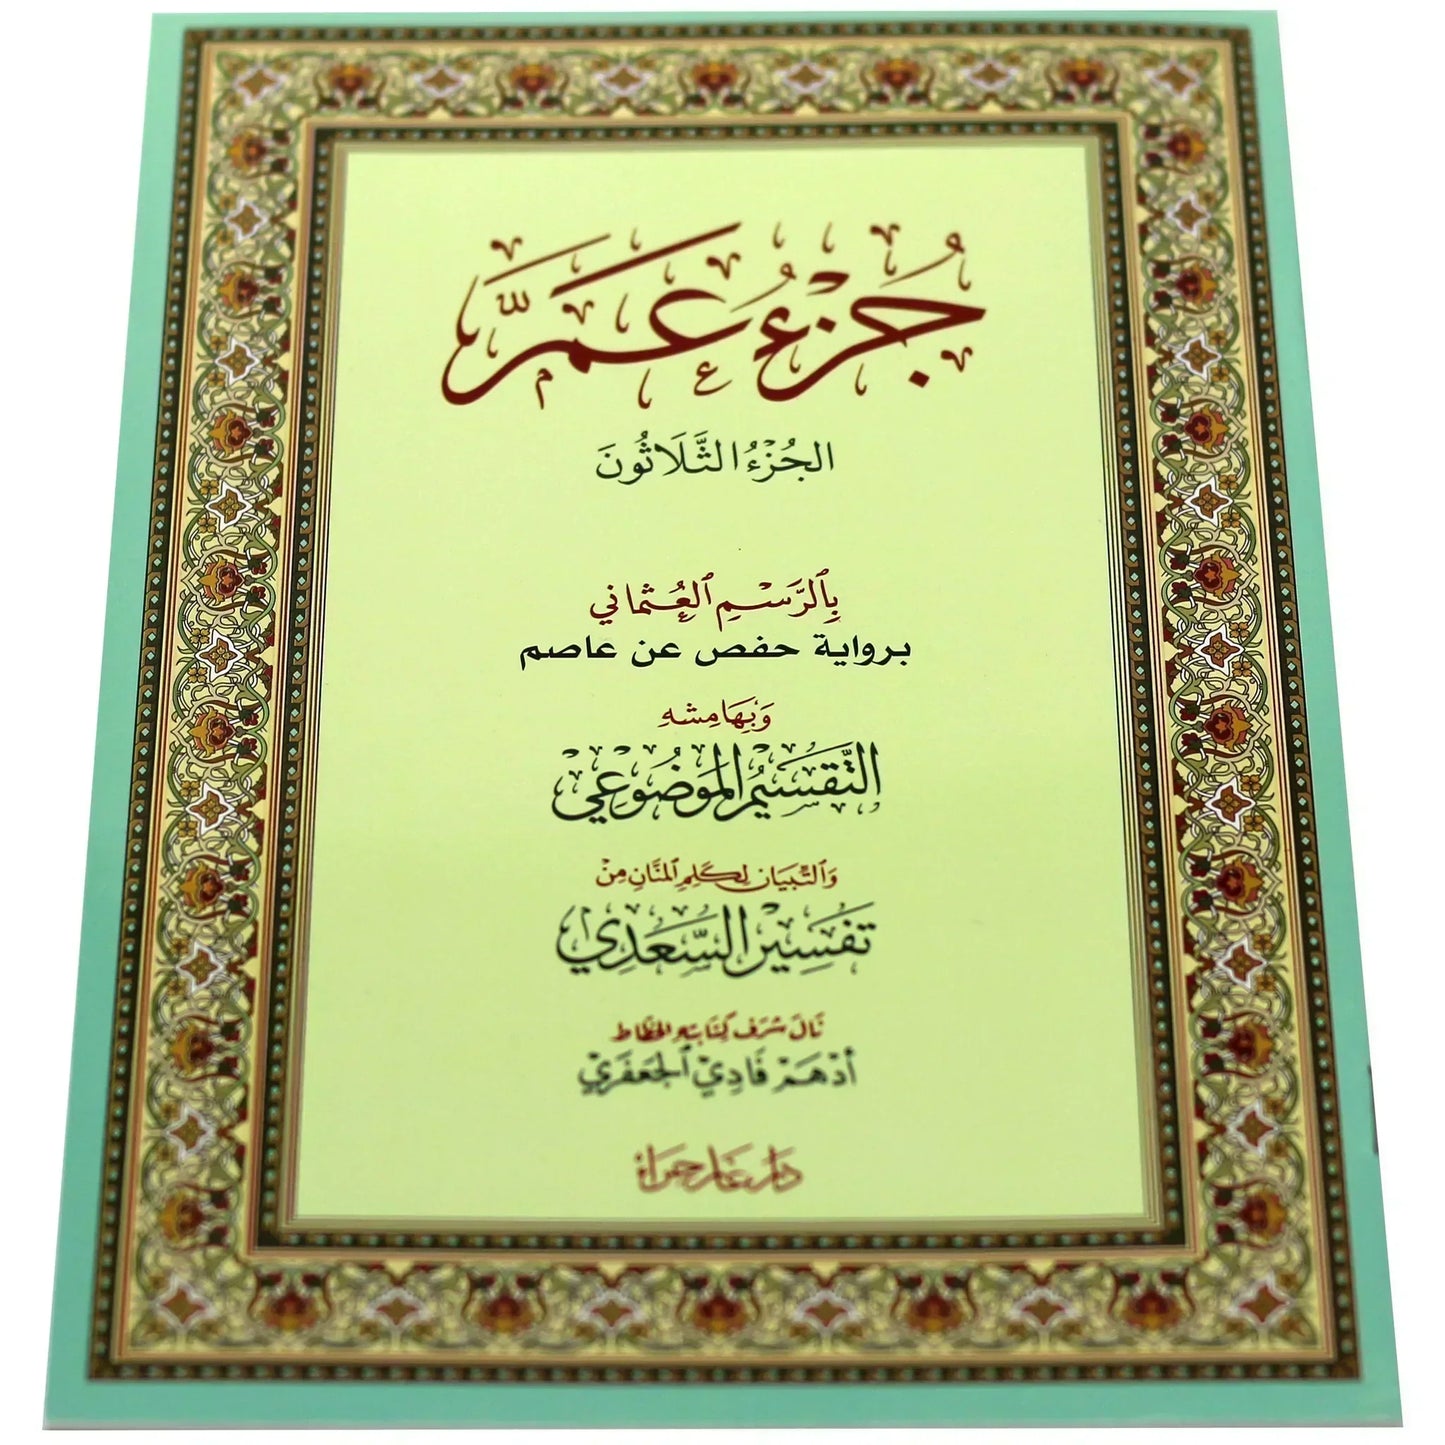 جُزْءُ عَمَّ
الجُزْءُ الثَّلَاثُونَ
بِالرَّسْمِ العُثْمَاني
برواية حفص عن عاصم
وَبِهَامِشه
التَّقْسِيْمُ المَوْضُوْعِيْ
وَالتِّبيَان لِكَلِمِ المَنَّانِ مِنْ
تَفْسِيْر السَّعْدِيْ
نَالَ شَرَفَ كِتَابَتِهِ الخَطَّاط
أدْهَمْ فَادِيْ الجَعْفَرِيْ
دَار غار حِرَاء